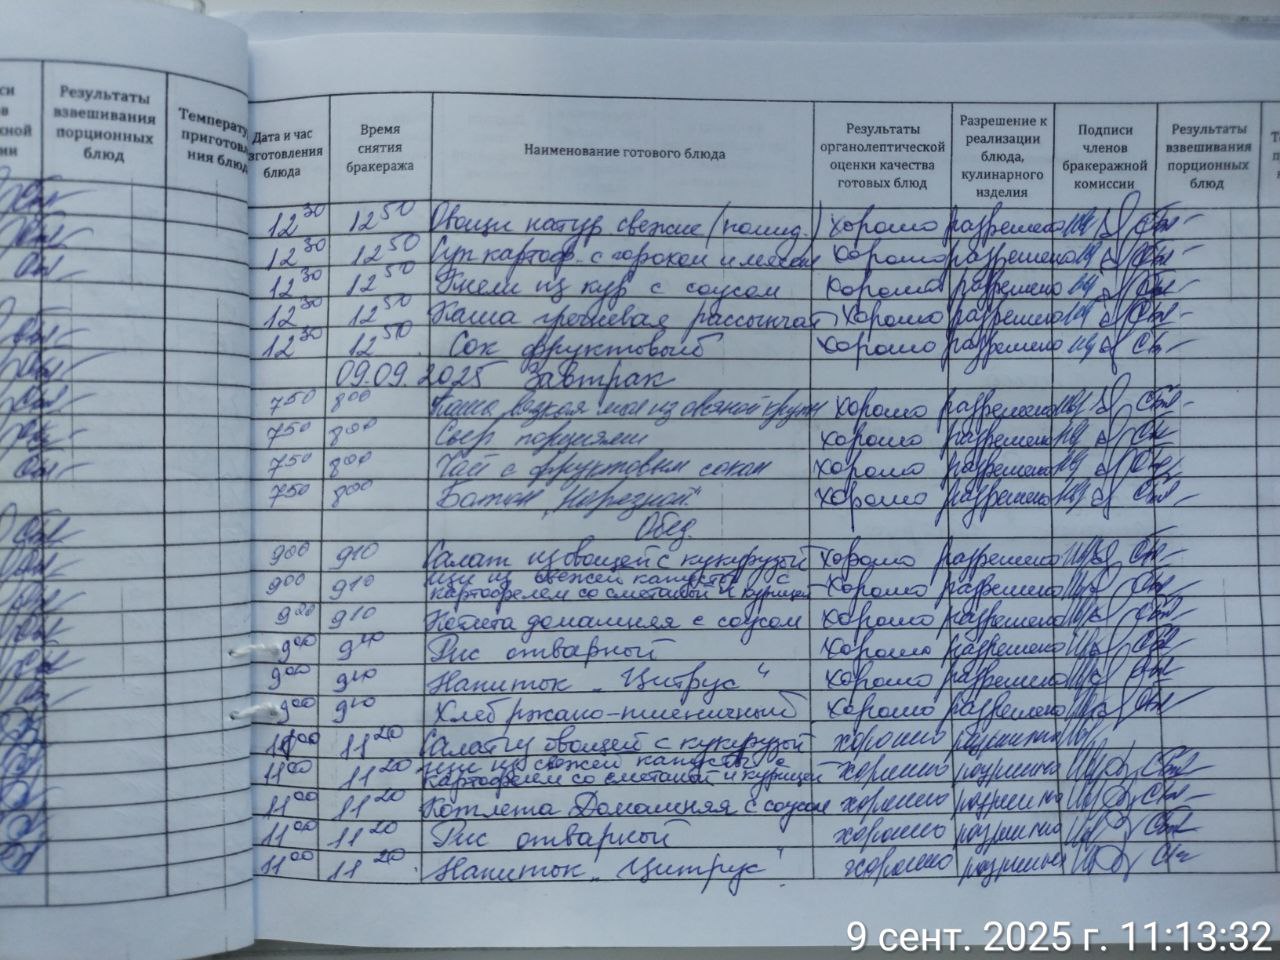 Результаты взвешивания порционных блюд
Дата и час изготовления блюда | Время снятия бракеража | Наименование готового блюда | Результаты органолептической оценки качества готовых блюд | Разрешение к реализации блюда, кулинарного изделия | Подписи членов бракеражной комиссии | Результаты взвешивания порционных блюд
12 30 12 50 Овощи натур свежие (помид.) хорошо разрешено
12 30 12 50 Суп картоф. с горохом и мясом хорошо разрешено
12 30 12 50 из кур с соусом хорошо разрешено
12 30 12 50 Каша гречневая рассыпчат хорошо разрешено
12 30 12 50 Сок фруктовый хорошо разрешено
09.09.2025 Завтрак
7 50 8 00 Каша вязкая мол из овсяной крупы хорошо разрешено
7 50 8 00 Сыр порциями хорошо разрешено
7 50 8 00 Чай с фруктовым соком хорошо разрешено
7 50 8 00 Батон "Нарезной" хорошо разрешено
Обед.
9 00 9 10 Салат из овощей с кукурузой хорошо разрешено
9 00 9 10 Щи из свежей капусты с картофелем со сметаной и курицей хорошо разрешено
9 00 9 10 Котлета домашняя с соусом хорошо разрешено
9 00 9 10 Рис отварный хорошо разрешено
9 00 9 10 Напиток "Цитрус" хорошо разрешено
9 00 9 10 Хлеб ржано-пшеничный хорошо разрешено
11 00 11 20 Салат из овощей с кукурузой хорошо разрешено
11 00 11 20 Щи из свежей капусты с картофелем со сметаной и курицей хорошо разрешено
11 00 11 20 Котлета Домашняя с соусом хорошо разрешено
11 00 11 20 Рис отварный хорошо разрешено
11 00 11 20 Напиток "Цитрус" хорошо разрешено
9 сент. 2025 г. 11:13:32